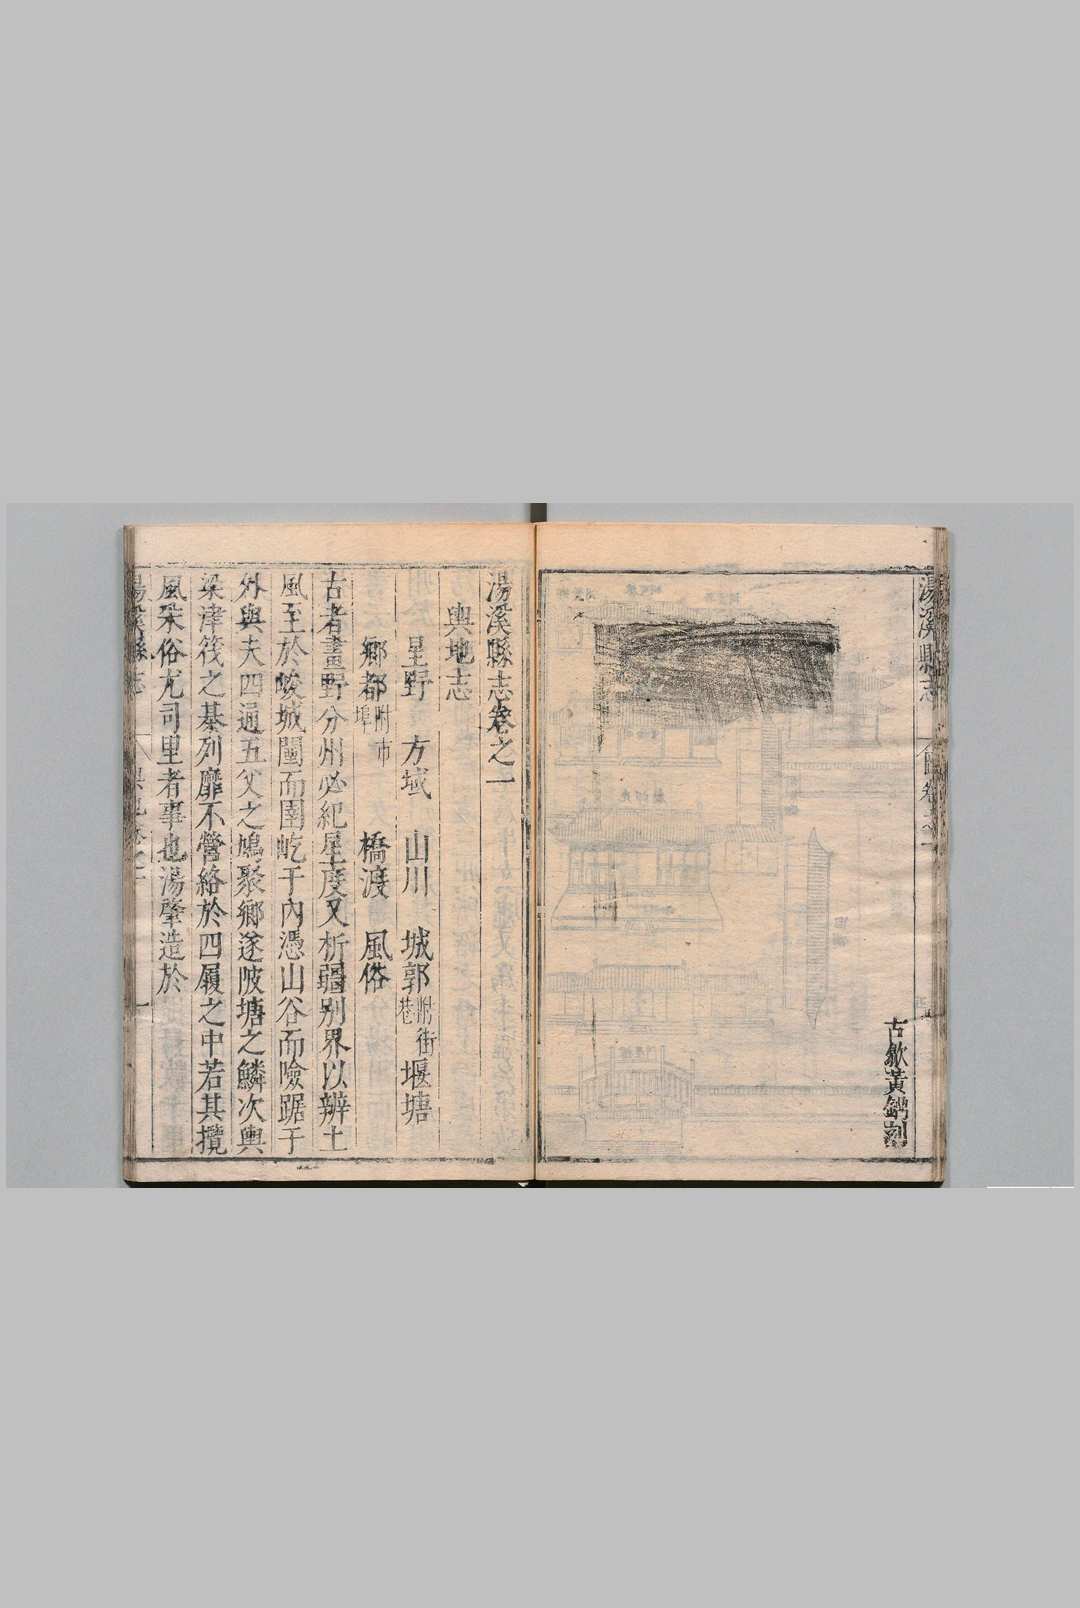 湯溪縣志
古歙黃鐫刻
湯溪縣志卷之一
輿地志
星野 方域 山川 城郭附街巷 堰塘
鄉都附市埠 橋渡 風俗
古者畫野分州必紀星度又析疆別界以辨土
風至於峻城闉而圉屹于內憑山谷而險踞于
外與夫四通五父之鳩聚鄉遂陂塘之鱗次輿
梁津筏之棊列靡不營絡於四履之中若其攬
風采俗尤司里者事也湯肇造於
湯溪縣志